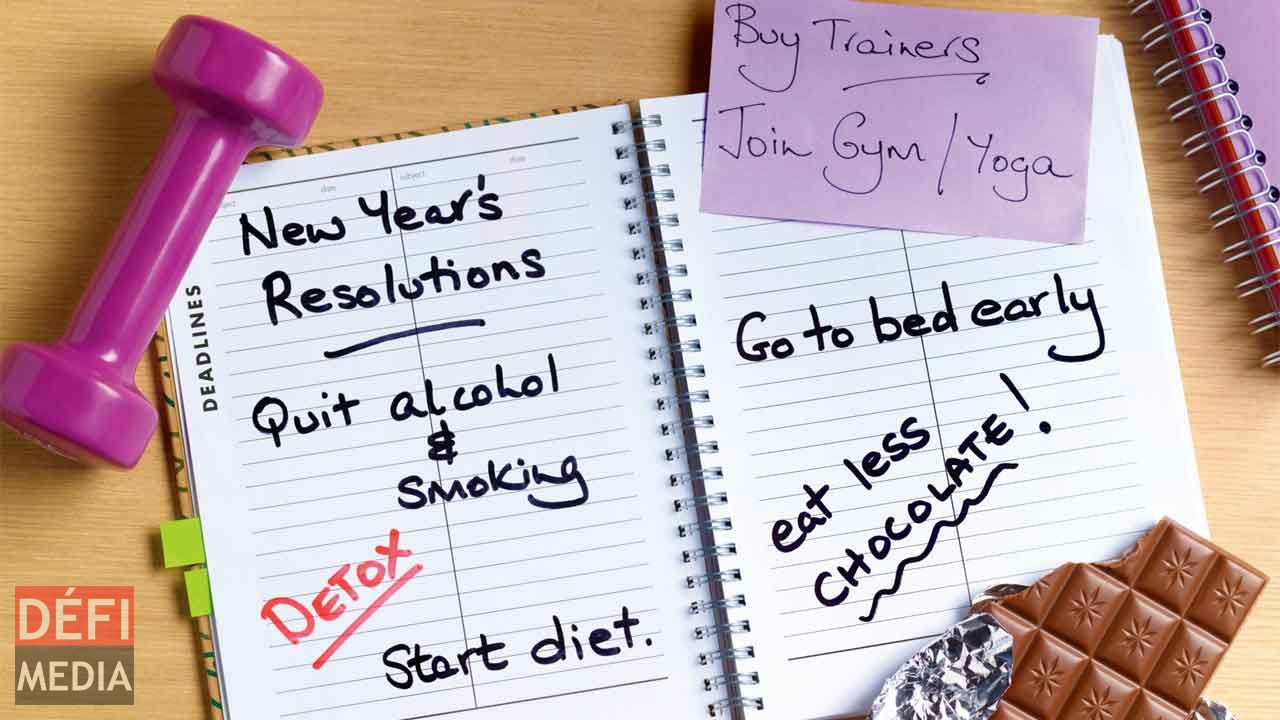 Buy Trainers
Join Gym / Yoga
date
subject
date
New Year's
Resolutions
DEADLINES
Quit alcohol
&
smoking
DETOX
Start diet.
Go to bed early
eat less
CHOCOLATE!
DÉFI
MEDIA